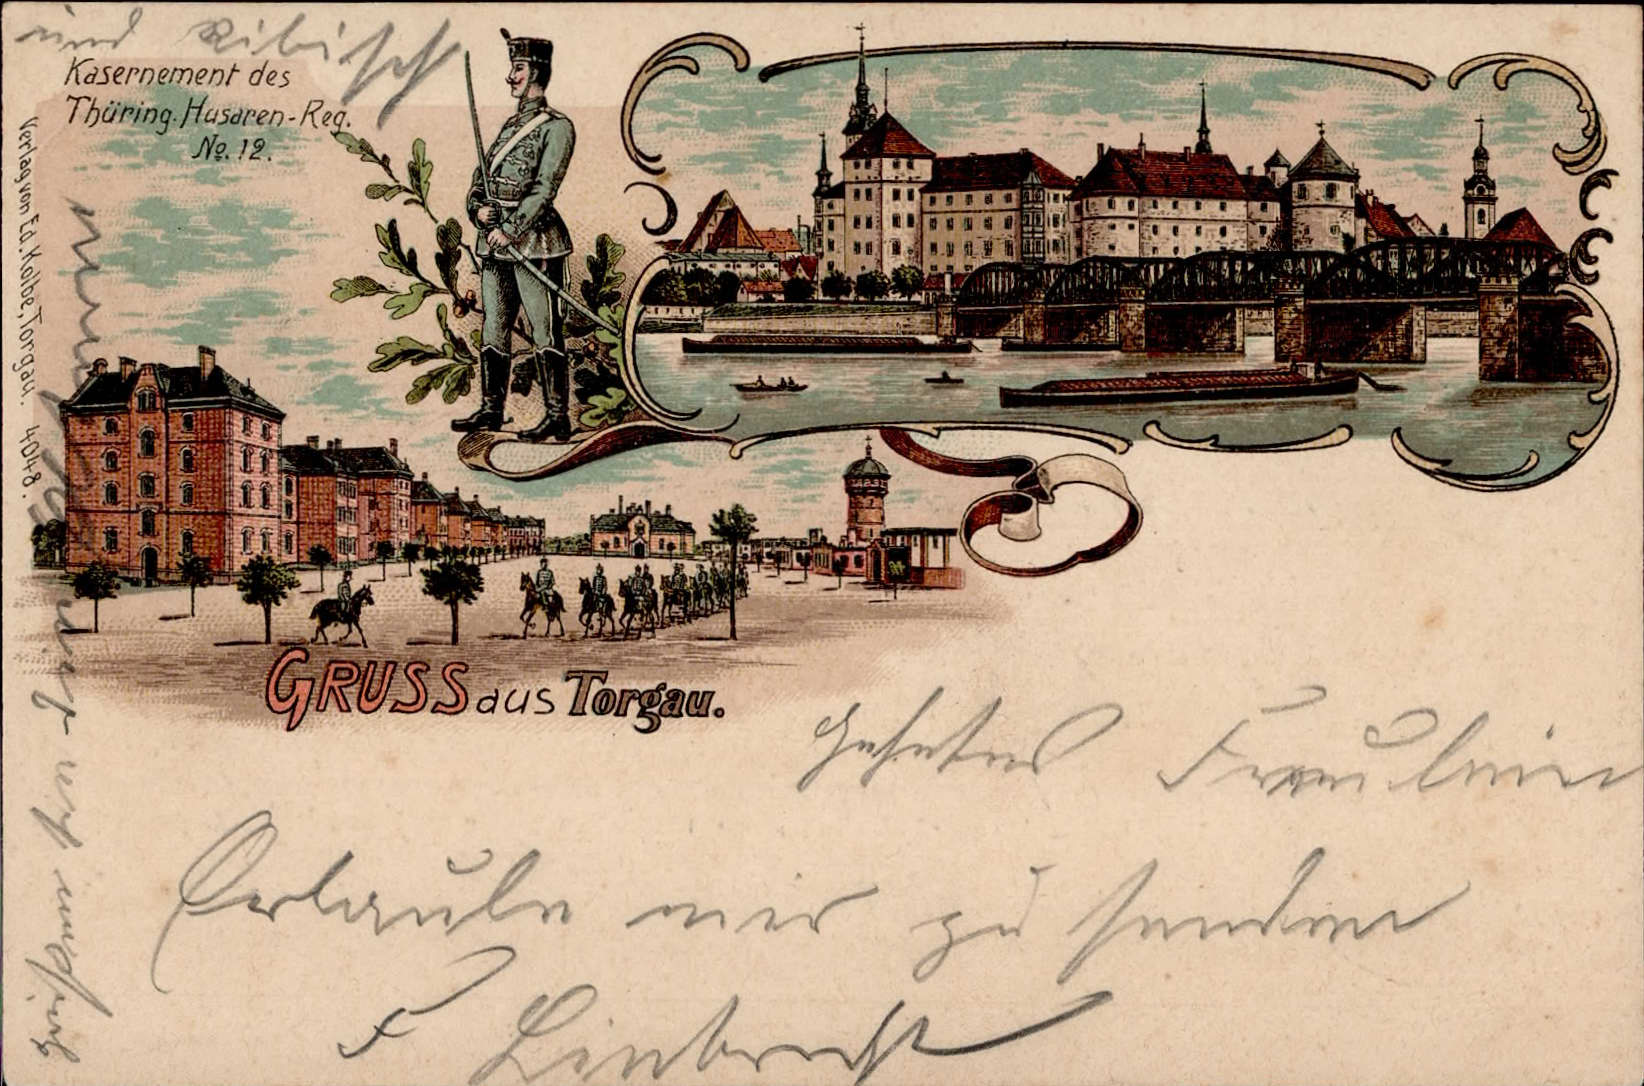 und Ribisch
Kasernement des
Thüring. Husaren-Reg.
No. 12.
Verlag von Ed. Kolbe, Torgau. 4048.
GRUSS aus Torgau.
Geehrtes Fräulein
Erlaube mir zu senden
F